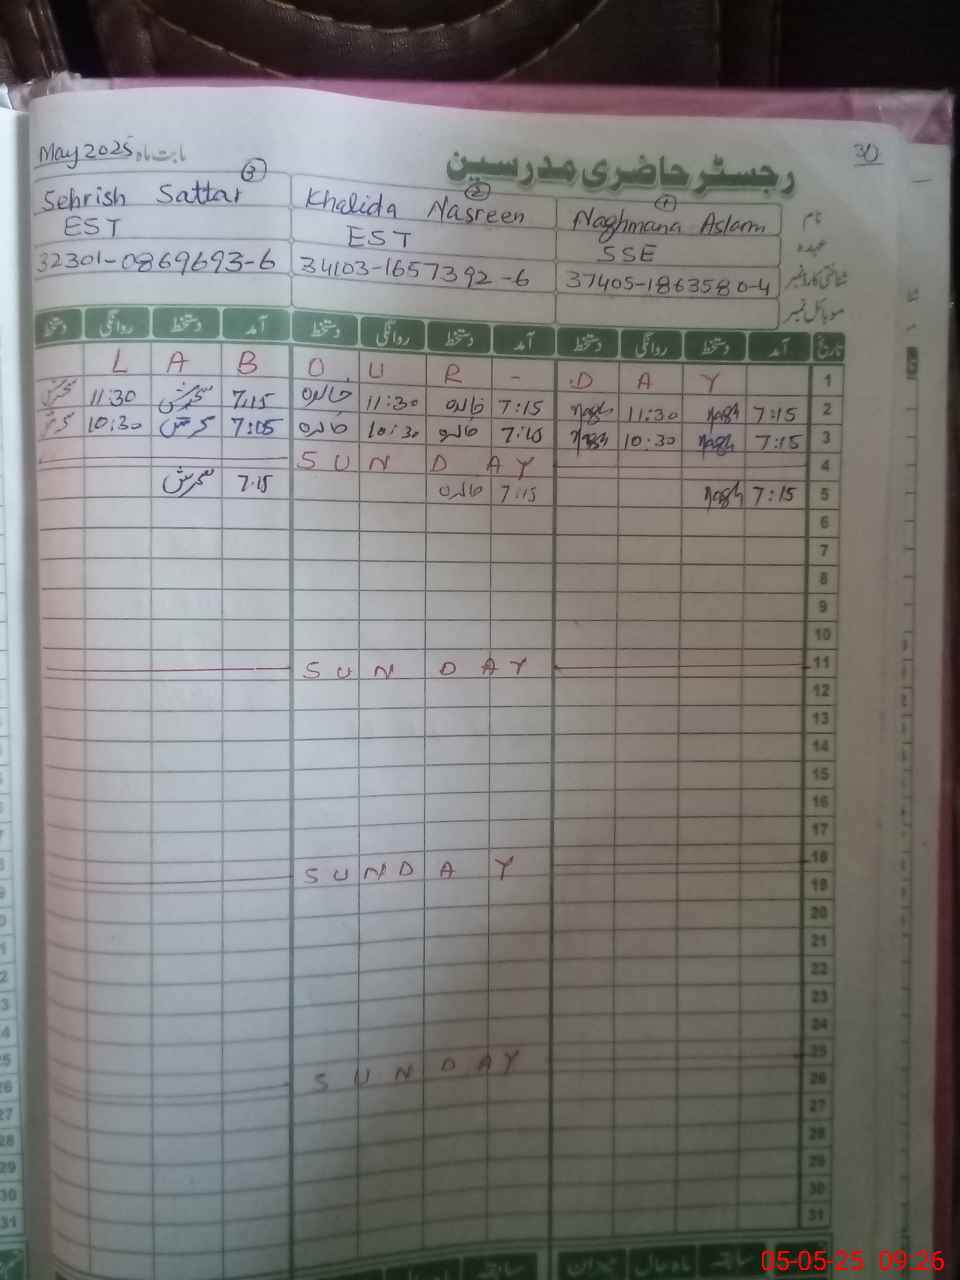 May 2025 بابت ماہ
رجسٹر حاضری مدرسین
30
نام Naghmana Aslam ① Khalida Nasreen ② Sehrish Sattar ③
عہدہ SSE EST EST
شناختی کارڈ نمبر 37405-1863580-4 34103-1657392-6 32301-0869693-6
موبائل نمبر
تاریخ آمد دستخط روانگی دستخط آمد دستخط روانگی دستخط آمد دستخط روانگی دستخط
1 L A B O U R - D A Y
2 7:15 Nagh 11:30 Nagh 7:15 خالدہ 11:30 خالدہ 7:15 سحرش 11:30 سحرش
3 7:15 Nagh 10:30 Nagh 7:15 خالدہ 10:30 خالدہ 7:15 سحرش 10:30
4 S U N D A Y
5 7:15 Nagh 7:15 خالدہ 7:15 سحرش
6
7
8
9
10
11 S U N D A Y
12
13
14
15
16
17
18 S U N D A Y
19
20
21
22
23
24
25 S U N D A Y
26
27
28
29
30
31
میزان ماہ حال سابقہ
05-05-25 09:26